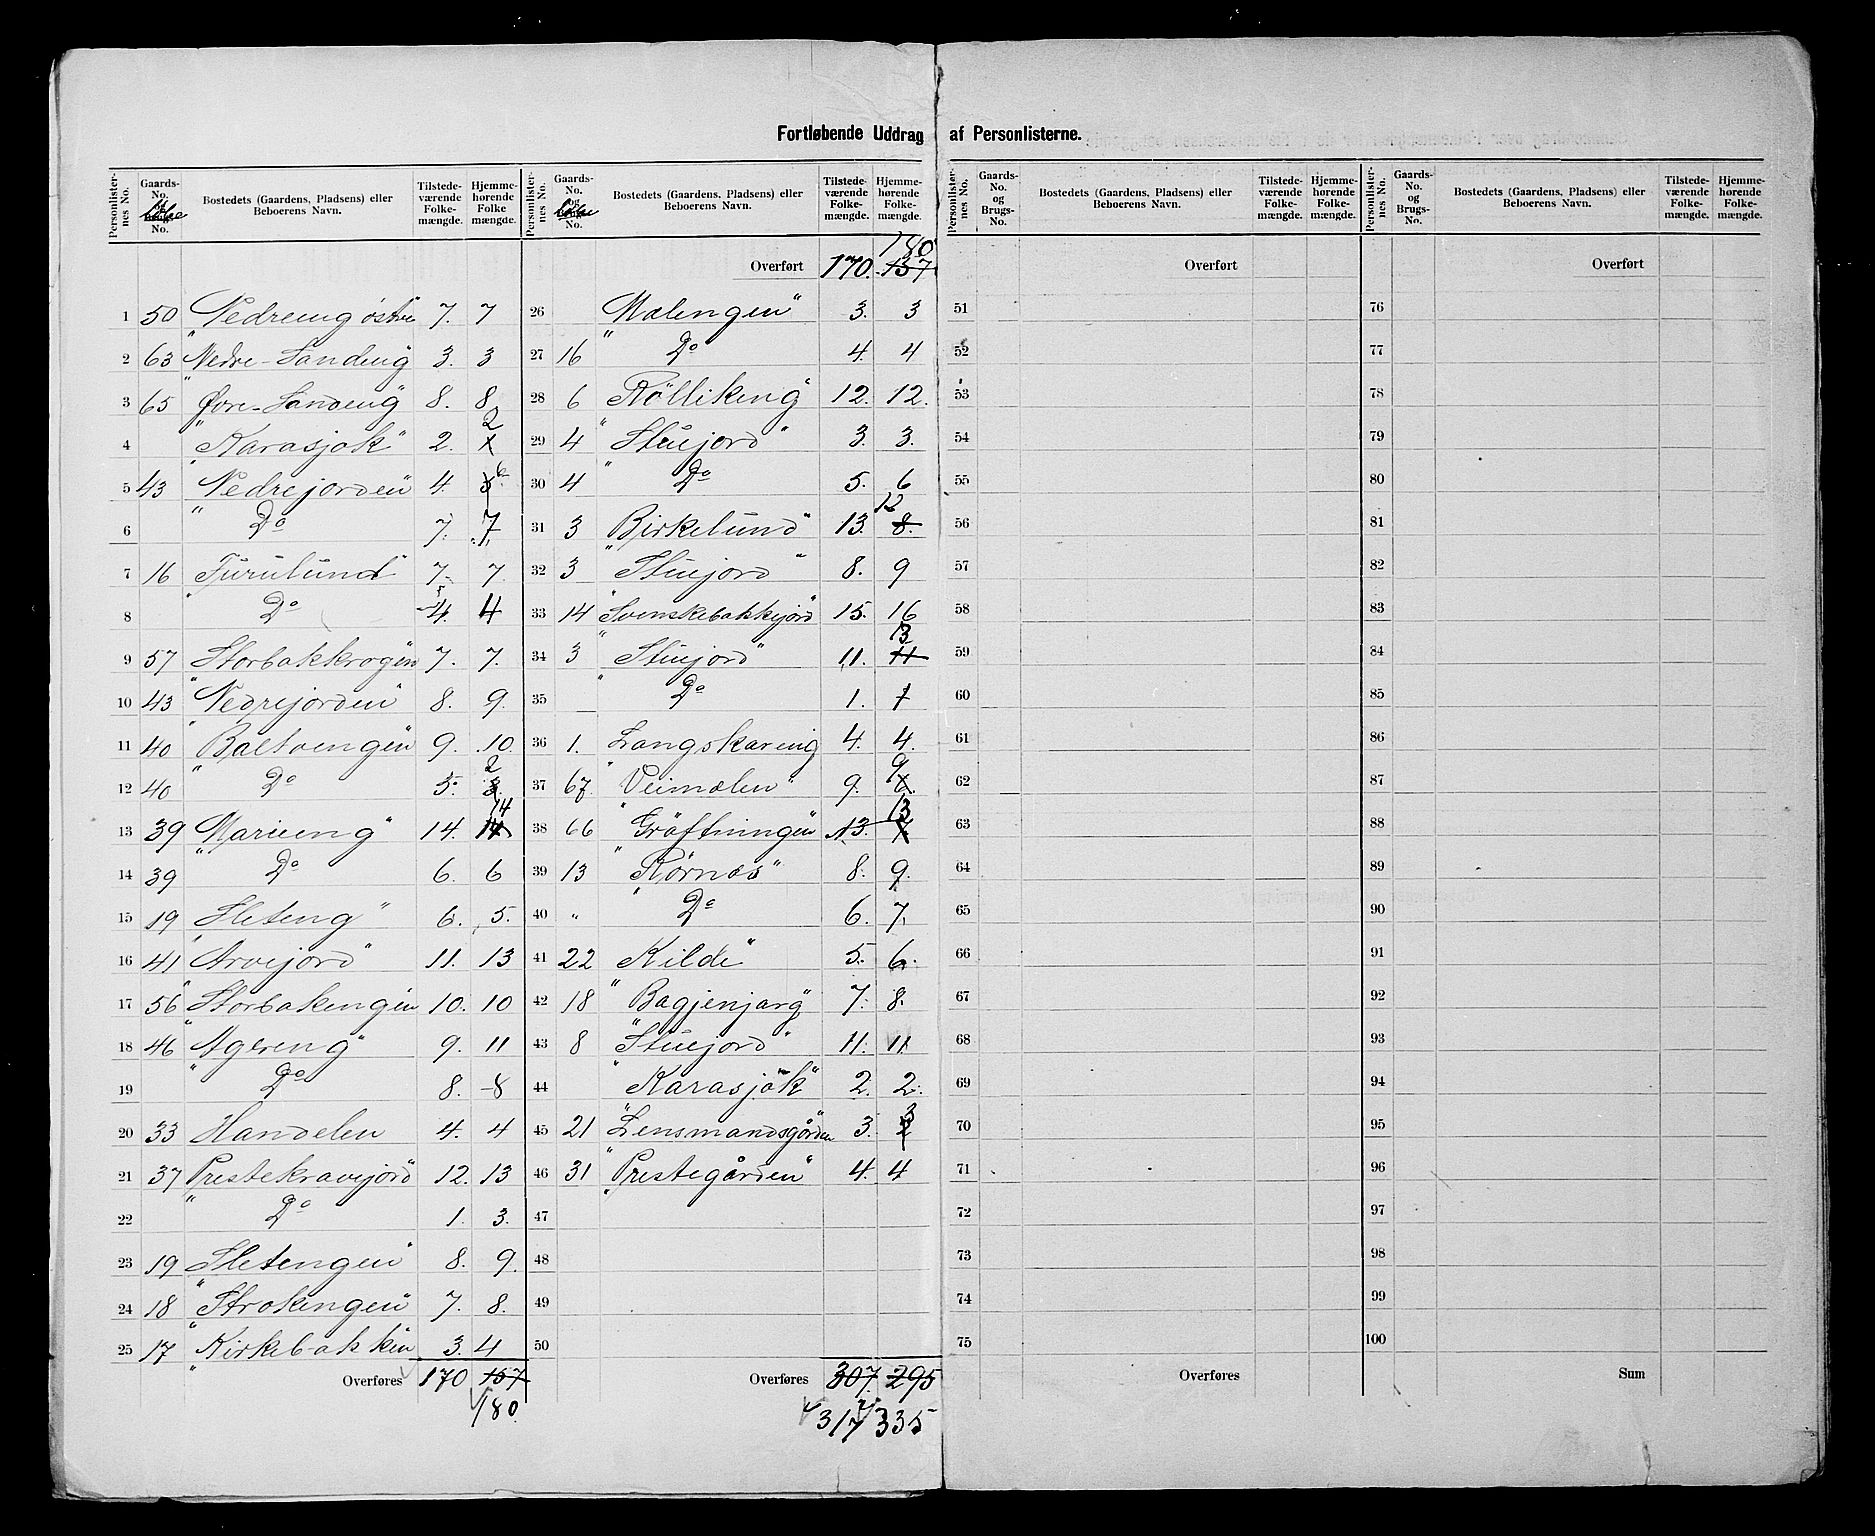 Fortløbende Uddrag af Personlisterne.
Personlister-nes No. Gaards-No. No. Bostedets (Gaardens, Pladsens) eller Beboerens Navn. Tilstede-værende Folke-mængde. Hjemme-hørende Folke mængde.
1 50 Nedreeng østre 7. 7
2 63 Nedre-Sandeng 3. 3
3 65 Øvre-Sandeng 8. 8
4 "Karasjok" 2. 2
5 43 Nedrejorden 4. 6
6 " Do 7. 7.
7 16 Furulund 7. 7.
8 " Do 4. 4
9 57 Storbakkrogen 7. 7.
10 43 "Nedrejorden" 8. 9.
11 40 "Baltoengen 9. 10.
12 40 " Do 5. 2
13 39 "Marieeng" 14. 14
14 39 " Do 6. 6
15 19 Sleteng" 6. 5.
16 41 "Arvejord" 11. 13
17 56 "Storbakengen 10. 10
18 46 "Agereng" 9. 11
19 " Do 8. 8
20 33 Handelen 4. 4
21 37 Prestekravejord" 12. 13
22 " Do 1. 3.
23 19 Sletengen" 8. 9.
24 18 "Strokengen" 7. 8.
25 17 "Kirkebakken 3. 4
Overføres 170 157
180
Personlister-nes No. Gaards-No. No. Bostedets (Gaardens, Pladsens) eller Beboerens Navn. Tilstede-værende Folke-mængde. Hjemme-hørende Folke-mængde.
180
Overført 170. 157
26 Mælengen" 3. 3
27 16 " Do 4. 4
28 6 Röllikeng" 12. 12.
29 4 "Stuejord" 3. 3.
30 4 " Do 5. 6
31 3 Birkelund" 13. 12 8.
32 3 "Stuejord" 8. 9
33 14 "Svenskebakkjord" 15. 16
34 3 "Stuejord" 11. 13 11
35 " Do 1. 1
36 1. Langskareng 4. 4.
37 67. "Veimælen" 9. 9
38 66 "Gröftningen 13. 13
39 13 "Rørnæs" 8. 9.
40 " " Do 6. 7.
41 22 Kilde" 5. 6.
42 18 "Bagjenjarg" 7. 8.
43 8 "Stuejord" 11. 11
44 "Karasjok" 2. 2.
45 21 "Lensmandsgården 3. 3
46 31 "Prestegården" 4. 4
47
48
49
50
Overføres 307. 295
317 335
Personlister-nes No. Gaards-No. og Brugs-No. Bostedets (Gaardens, Pladsens) eller Beboerens Navn. Tilstede-værende Folke-mængde. Hjemme-hørende Folke-mængde.
Overført
51
52
53
54
55
56
57
58
59
60
61
62
63
64
65
66
67
68
69
70
71
72
73
74
75
Overføres
Personlister-nes No. Gaards-No. og Brugs-No. Bostedets (Gaardens, Pladsens) eller Beboerens Navn. Tilstede-værende Folke-mængde. Hjemme-hørende Folke-mængde.
Overført
76
77
78
79
80
81
82
83
84
85
86
87
88
89
90
91
92
93
94
95
96
97
98
99
100
Sum